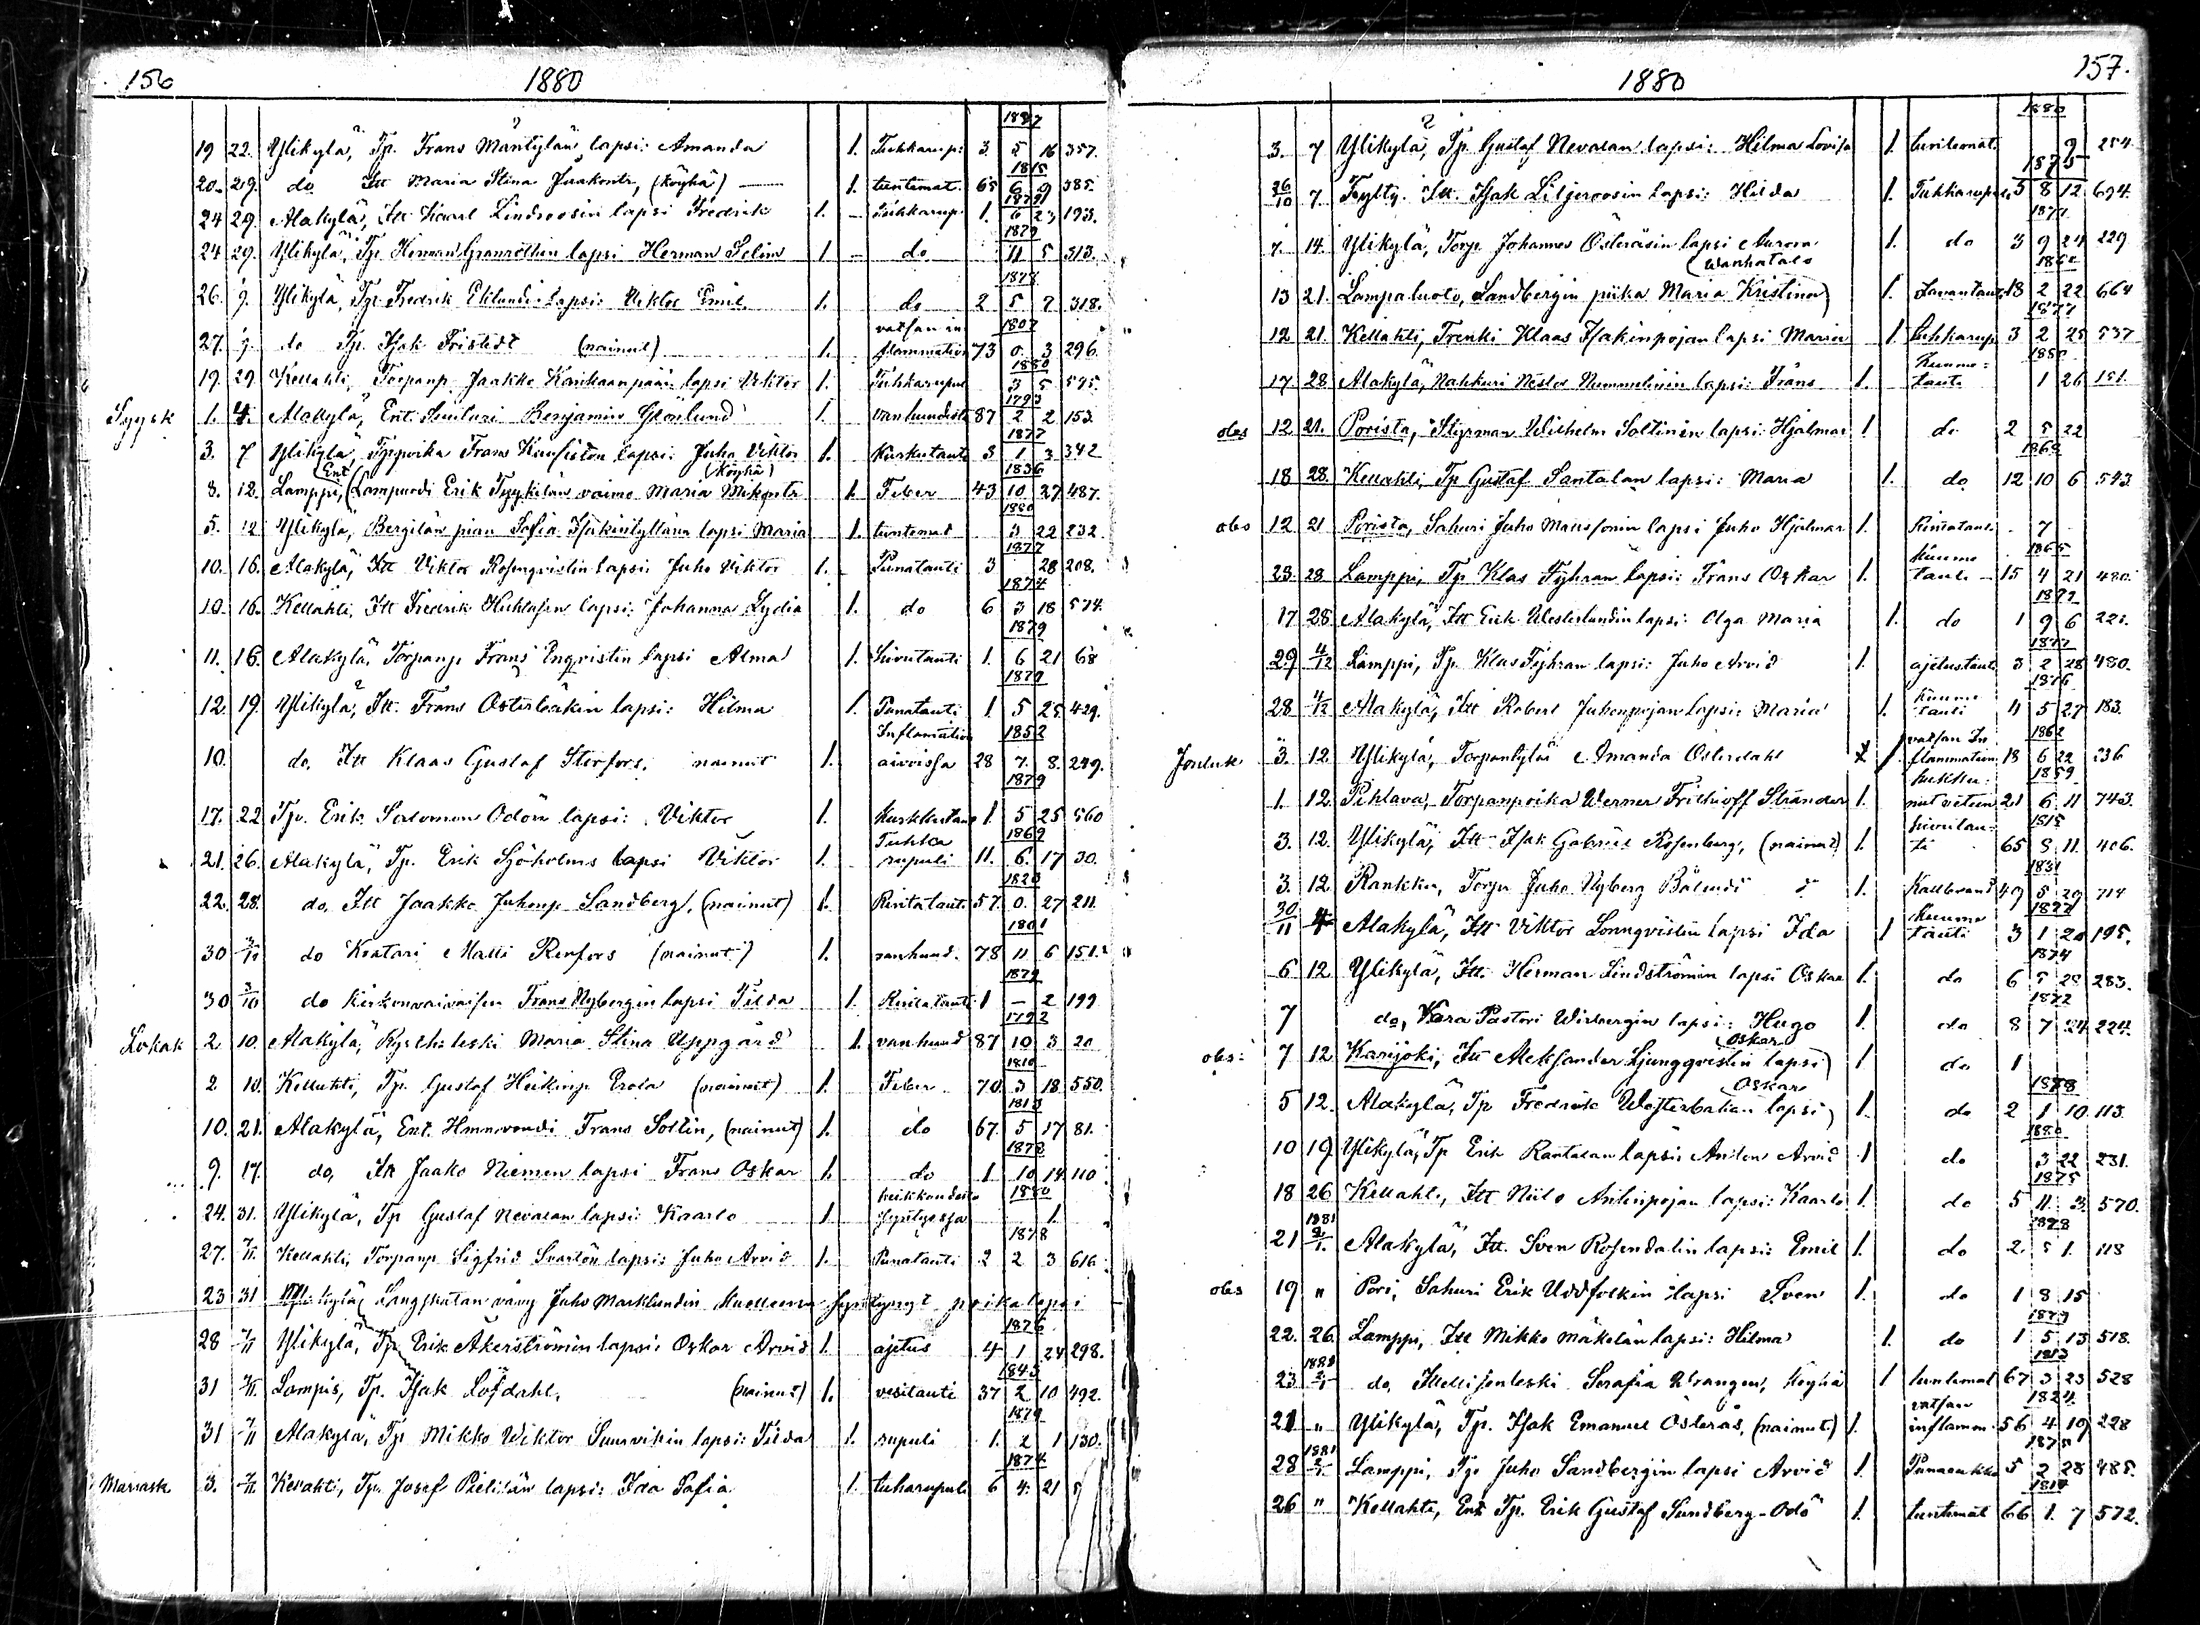 156 1880
1877
19 22. Ylikylä, Tp. Frans Mäntylän lapsi: Amanda 1. Tuhkarup: 3. 5 16 357.
1815
20. 29. do Itt Maria Stina Jaakontr, (köyhä) 1. tuntemat. 65 6 9 385.
1879
24 29. Alakylä, Itt Kaarl Lindroosin lapsi Fredrik 1. Tuhkarup. 1. 6 23 193.
1879
24 29. Ylikylä, Tp. Herman Granrothin lapsi Herman Selim 1. do 11 5 313.
1878
26. Ylikylä, Tp. Fredrik Eklundi lapsi: Viktor Emil 1. do 2 5 7 318.
vatsan in 1807
27. do Tp. Isak Fristedt (nainut) 1. flammation 73 0. 3 296.
1880
19. 29 Kellahti, Torpanp. Jaakko Kankaanpään lapsi Viktor 1. Tuhkarupul 3 5 595.
1793
Syysk 1. 4. Alakylä, Ent. Suutari Benjamin Grönlund 1. vanhuudesta 87 2 2 153
1877
3. 7 Ylikylä, Tppoika Frans Kuusiston lapsi: Juho Viktor 1. Kurkutauti 3 1 3 342
Ent (köyhä) 1836
8. 12. Lamppi, Lampuodi Erik Tyykilän vaimo Maria Mikontr 1. Feber 43 10 27 487.
1880
5. 12 Ylikylä, Bergilän pian Sofia Isakintyttären lapsi Maria 1. tuntemat 3 22 232
1877
10. 16. Alakylä, Itt Viktor Rosenqvistin lapsi Juho Viktor 1. Punatauti 3 28 208.
1874
10. 16. Kellahti, Itt Fredrik Huhtasen lapsi: Johanna Lydia 1. do 6 3 18 574.
1879
11. 16. Alakylä, Torpanp Frans Enqvistin lapsi Alma 1. Sivutauti 1. 6 21 68
1879
12. 19. Ylikylä, Itt. Frans Österbäkin lapsi: Hilma 1. Punatauti 1. 5 25 429.
Inflamation 1852
10. do, Itt Klaas Gustaf Storfors, nainut 1. aivoissa 28 7. 8. 249.
1879
17. 22 Tp. Erik Salomon Odön lapsi: Viktor 1. Kurkkutauti 1. 5 25 560
Tuhka 1869
21. 26. Alakylä, Tp. Erik Sjöholms lapsi Viktor 1. rupuli 11. 6. 17 30.
1823
22. 28. do, Itt Jaakko Juhonp Sandberg, (nainut) 1. Rintataut. 57. 0. 27 211
1801
30 3/10 do Kraatari Matti Renfors (nainut) 1. vanhuud. 78 11 6 151.
1879
30 3/10 do kirkonvaivaisen Frans Nybergin lapsi Tilda 1. Rintatauti 1 – 2 199
1792
Lokak 2. 10. Alakylä, Rusth. leski Maria Stina Uppgård 1. vanhuud 87 10 3 20
1810
2 10. Kellahti, Tp. Gustaf Heikinp Erola (nainut) 1. Feber 70. 3 18 550.
1813
10. 21. Alakylä, Ent. Frans Sollin, (nainut) 1. do 67. 5 17 81.
1878
9. 17. do, Itt Jaako Niemen lapsi Frans Oskar 1. do 1 10 14 110
heikkoudesta 1880
24. 31. Ylikylä, Tp Gustaf Nevalan lapsi: Kaarlo 1. syntyessä 1.
1878
27. 7/11 Kellahti, Torpanp Sigfrid Svartön lapsi: Juho Arvid 1. Punatauti 2 2 3 616
23 31 Ylikylä, Långskatan vävy Juho Marklundin kuolleena syntynyt poikalapsi
1876
28 7/11 Ylikylä, Tp Erik Åkerströmin lapsi: Oskar Arvid 1. ajetus 4 1 24 298.
1843
31 7/11. Lampis, Tp. Isak Löfdahl. (nainut) 1. vesitauti 37 2 10 492.
1879
31 7/11 Alakylä, Tp Mikko Wiktor Suurvikin lapsi: Tilda 1. rupuli 1. 2 1 130.
1874
Marrask 3. 7/11 Kellahti, Tp. Josef Pietilän lapsi: Ida Sofia 1. tuharupuli 6 4. 21 5
1880 157.
1880
3. 7 Ylikylä, Tp. Gustaf Nevalan lapsi: Hilma Lovisa 1. tuntemat. 9 254.
1875
26/10 7. Fryltz. Itt. Isak Liljeroosin lapsi: Hilda 1. Tuhkarupuli 5 8 12. 694.
1877
7. 14. Ylikylä, Torp. Johannes Österåsin lapsi Aurora 1. do 3 9 24 229
Wanhatalo 1862
13 21. Lampaluoto, Sandbergin piika Maria Kristina 1. Lavantauti 18 2 22 664
1877
12 21. Kellahti, Trenki Klaas Isakinpojan lapsi Maria 1. tuhkarup 3 2 25 537
Kuume= 1880
17 28 Alakylä, Nahkuri Nestor Nummelinin lapsi: Frans 1. tauti 1 26 151.
obs 12 21. Porista, Styrman Wilhelm Soltinin lapsi: Hjalmar 1 do 2 5 22
1868
18 28. Kellahti, Tp Gustaf Santalan lapsi: Maria 1. do 12 10 6 543.
obs 12 21 Porista, Sahuri Juho Maussonin lapsi Juho Hjalmar 1. Rintatauti 7
kuume 1865
23. 28 Lamppi, Tp Klas Fyhrän lapsi: Frans Oskar 1. tauti 15 4 21 480.
1879
17 28. Alakylä, Itt Erik Westerlundin lapsi: Olga Maria 1. do 1 9 6 221.
1877
29 4/12 Lamppi, Tp. Klas Fyhrän lapsi: Juho Arvid 1. ajetustauti 3 2 28 480.
kuume 1876
28. 4/12 Alakylä, Itt Robert Juhonpojan lapsi: Maria 1. tauti 4 5 27 183.
vatsan In 1862
Jouluk 3. 12 Ylikylä, Torpantytär Amanda Österdahl 1. flammation 18 6 22 236
hukku: 1859
1. 12 Pihlava, Torpanpoika Werner Frithioff Strander 1. nut veteen 21 6 11 743.
sivutau= 1815
3. 12. Ylikylä, Itt Isak Gabriel Rosenberg, (nainut) 1. ti 65 8 11. 406.
1831
3. 12. Rankku, Torp. Juho Nyberg 1. Kallbrand 49 5 29 714
kuume 1877
30/11 4 Alakylä, Itt Viktor Lönnqvistin lapsi Ida 1 tauti 3 1 20 195.
1874
6 12. Ylikylä, Itt. Herman Lindströmin lapsi Oskar 1. do 6 5 28 283.
1872
7 do, Vara Pastori Widbergin lapsi: Hugo 1. do 8 7 24 224.
Oskar
obs: 7 12 Karijoki, Itt Aleksander Ljungqvistin lapsi 1. do 1
Oskar 1878
5 12. Alakylä, Tp Fredrik Westerbakan lapsi 1. do 2 1 10 113.
1880
10 19. Ylikylä, Tp Erik Rantalan lapsi: Anton Arvid 1 do 3 22 231.
1875
18 26 Kellahti, Itt Niilo Antinpojan lapsi: Kaarlo 1. do 5 11 3. 570.
1881 1878
21 2/1. Alakylä, Itt. Sven Rosendalin lapsi: Emil 1. do 2. 5 1. 118
obs 19 " Pori, Sahuri Erik Uddfolkin lapsi Sven 1. do 1 8 15
1879
22. 26. Lamppi, Itt Mikko Mäkelän lapsi: Hilma 1. do 1 5 13 518.
1881 1813
23 2/1 do, Itsellisenleski Serafia Wrangen, köyhä 1 tuntemat 67 3 23 528
vatsan 1824
21 " Ylikylä, Tp. Isak Emanuel Österås, (nainut) 1. inflamm. 56 4 19 228
1881 1875
28 2/1 Lamppi, Tp Juho Sandbergin lapsi Arvid 1. Punarukko 5 2 28 485.
1814
26 " Kellahti, Ent Tp. Erik Gustaf Sundberg-Odö 1. tuntemat 66 1. 7 572.